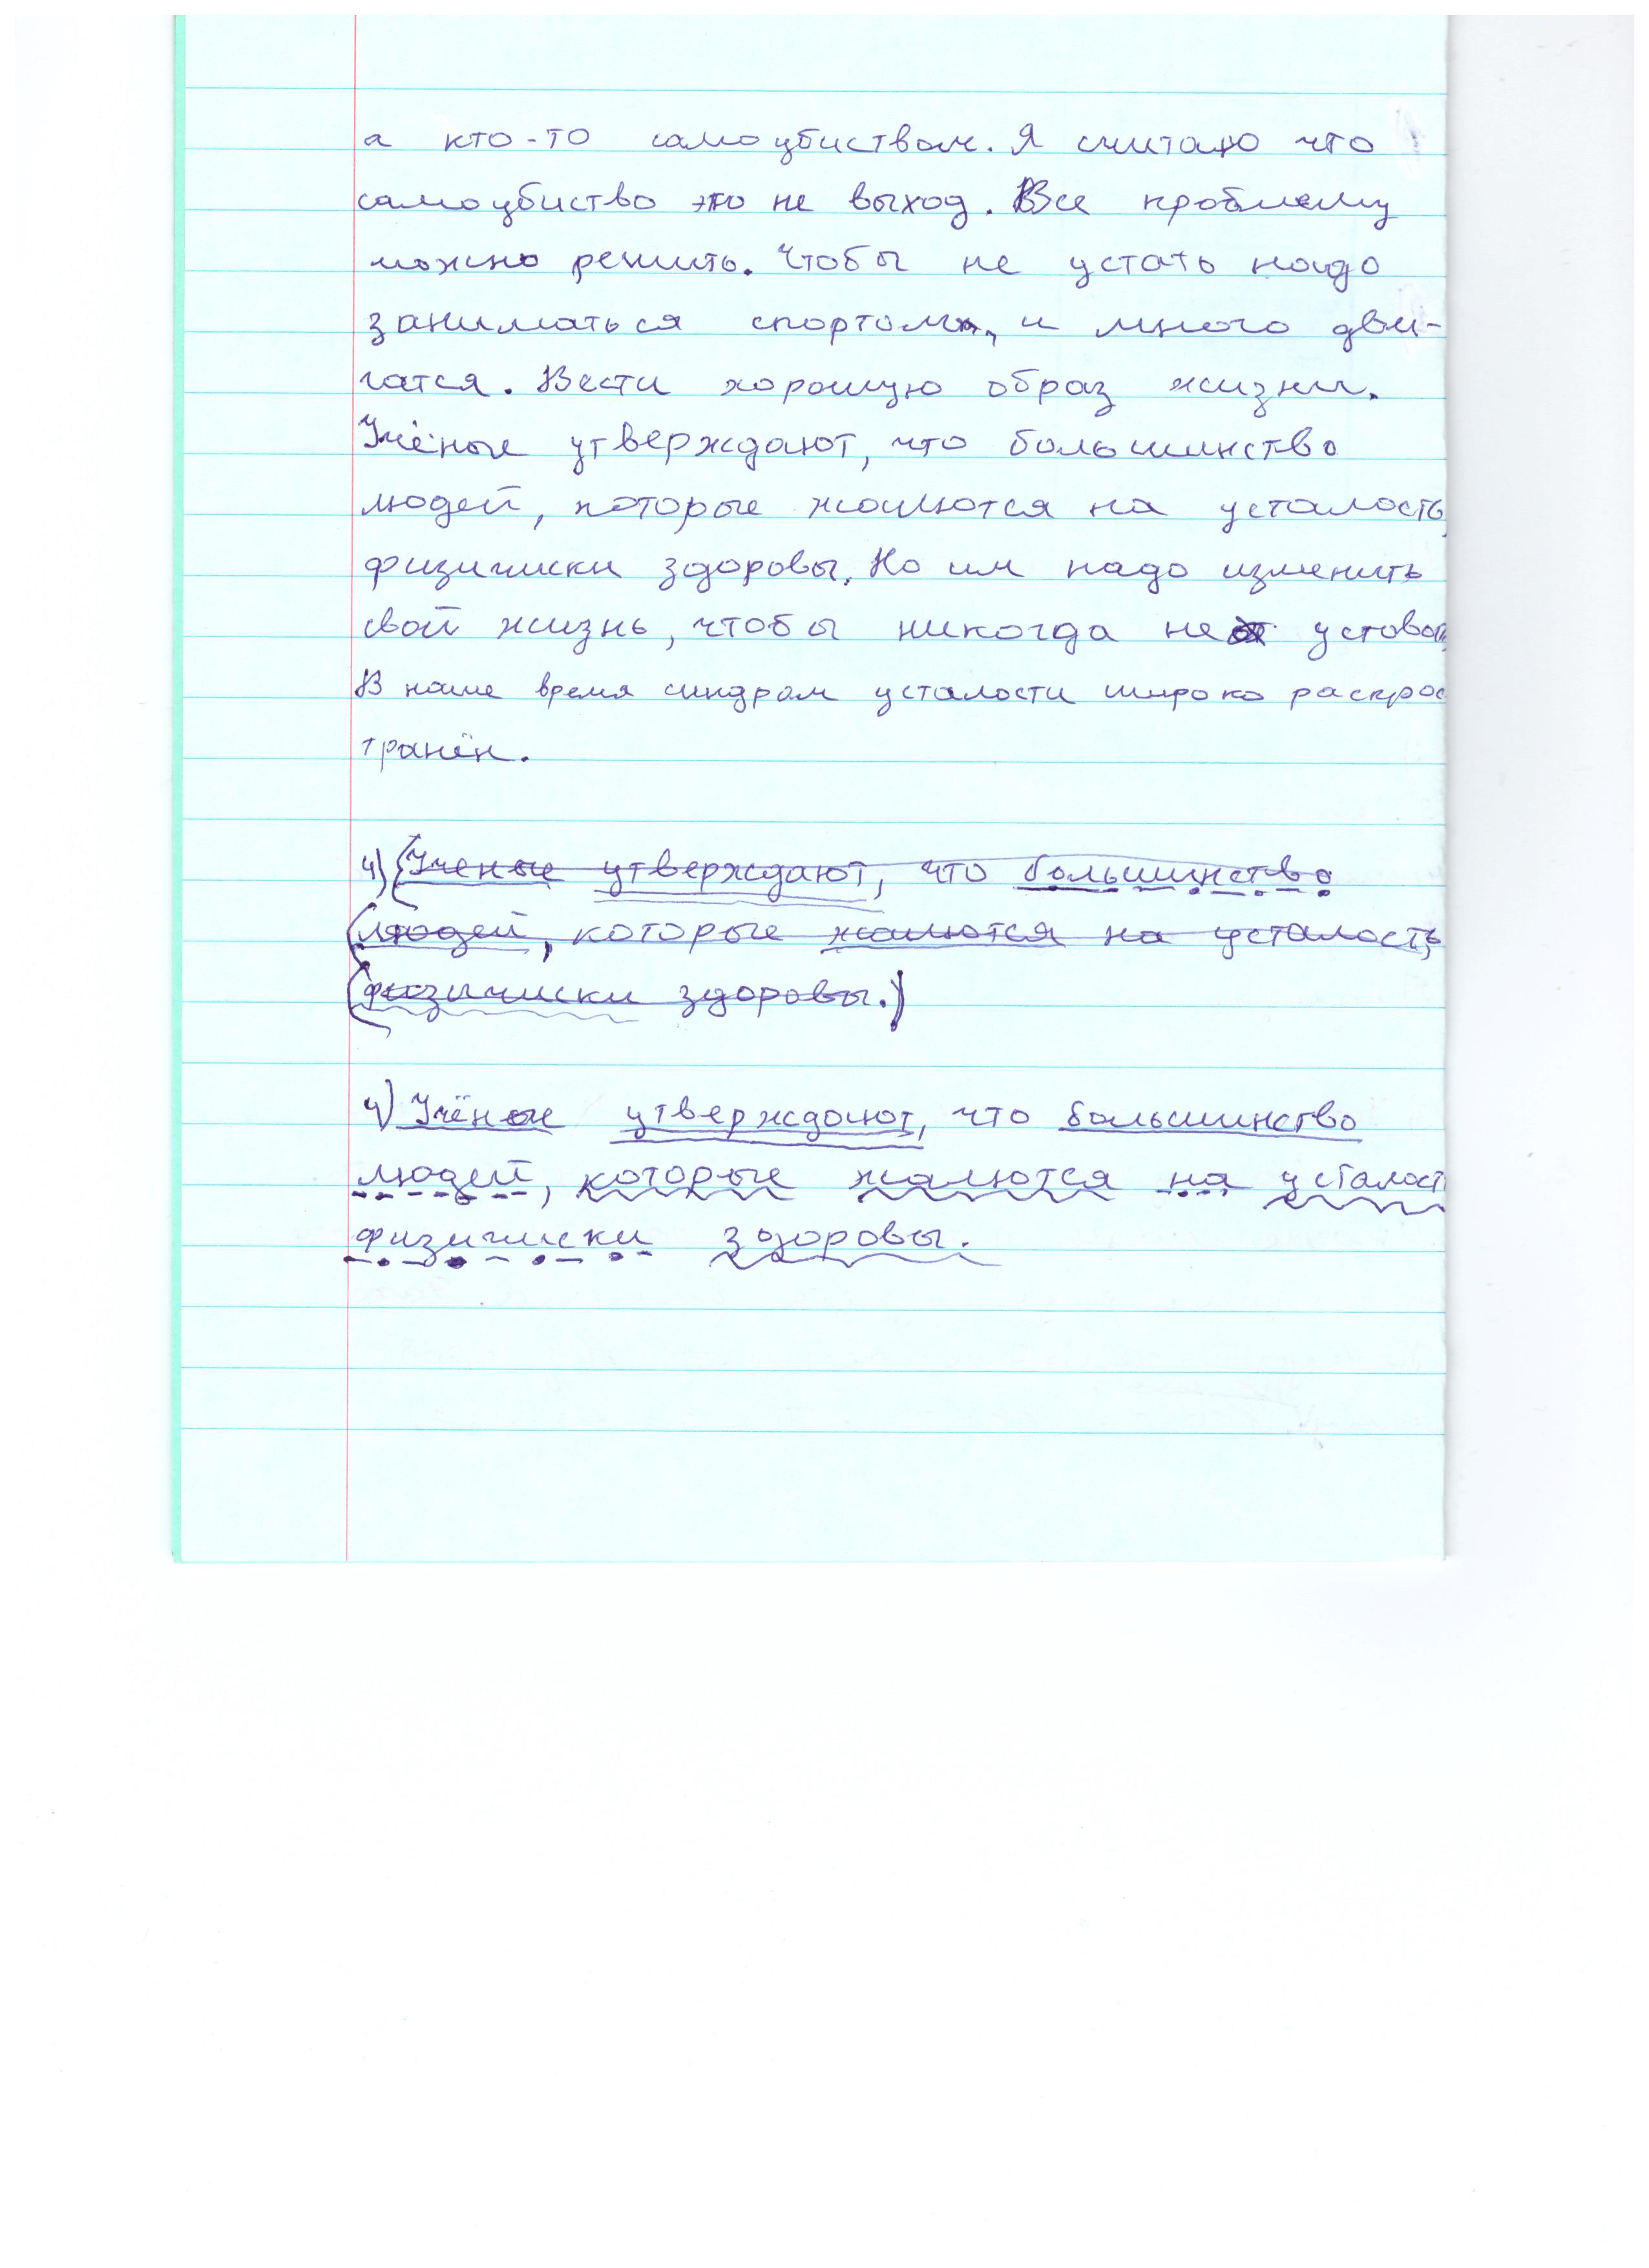 а кто-то самоубиством. Я считаю что
самоубиство это не выход. Все проблему
можно решить. Чтобы не устать надо
заниматься спортом, и много дви-
гатся. Вести хорошую образ жизни.
Учёные утверждают, что большинство
людей, которые жалются на усталость,
физичиски здоровы. Но им надо изменить
свой жизнь, чтобы никогда не устоват
В наше время синдром усталости широко распрос
транён.
4) (Ученые утверждают, что большинство
людей, которые жалются на усталость
физичиски здоровы.)
4) Учёные утверждают, что большинство
людей, которые жалются на усталост
физичиски здоровы.